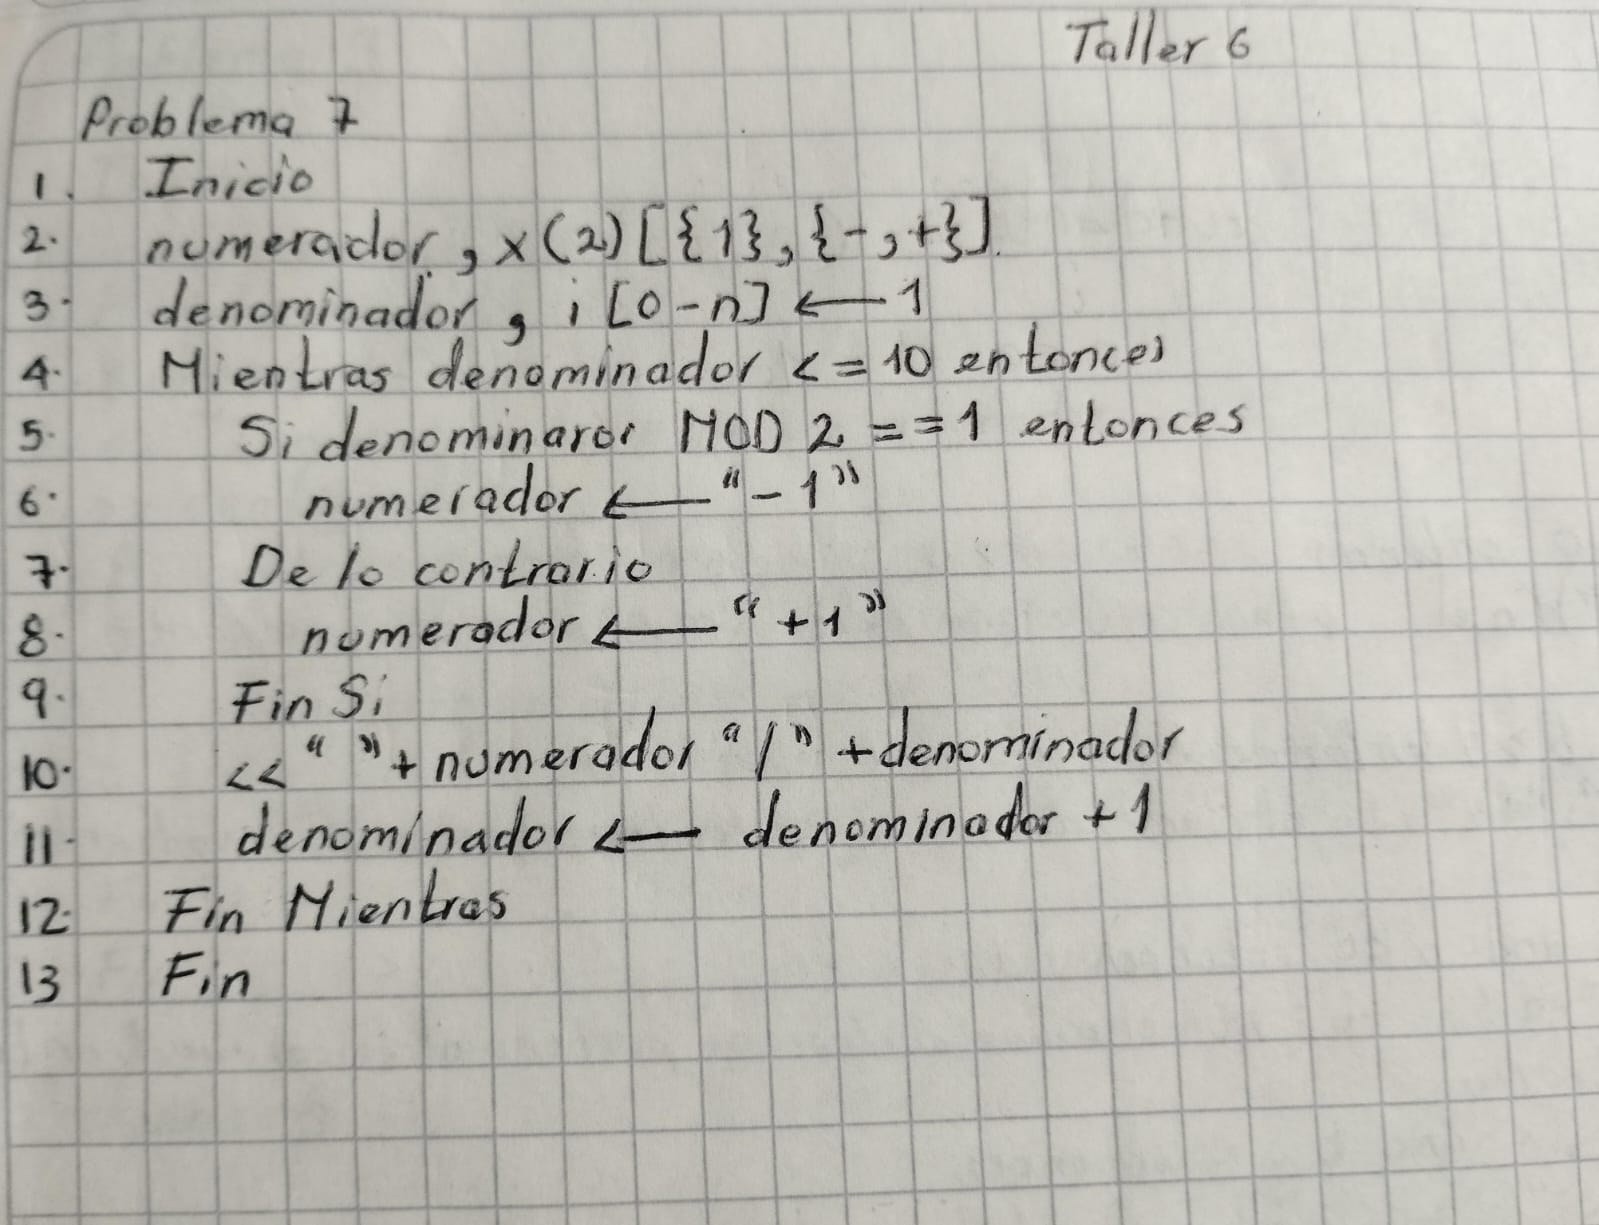 Taller 6
Problema 7
1. Inicio
2. numerador, x(2)[{1},{-,+}].
3. denominador, i [0-n] ← 1
4. Mientras denominador <= 10 entonces
5. Si denominaror MOD 2 == 1 entonces
6. numerador ← "-1"
7. De lo contrario
8. numerador ← "+1"
9. Fin Si
10. << " " + numerador "/" + denominador
11. denominador ← denominador + 1
12. Fin Mientras
13 Fin